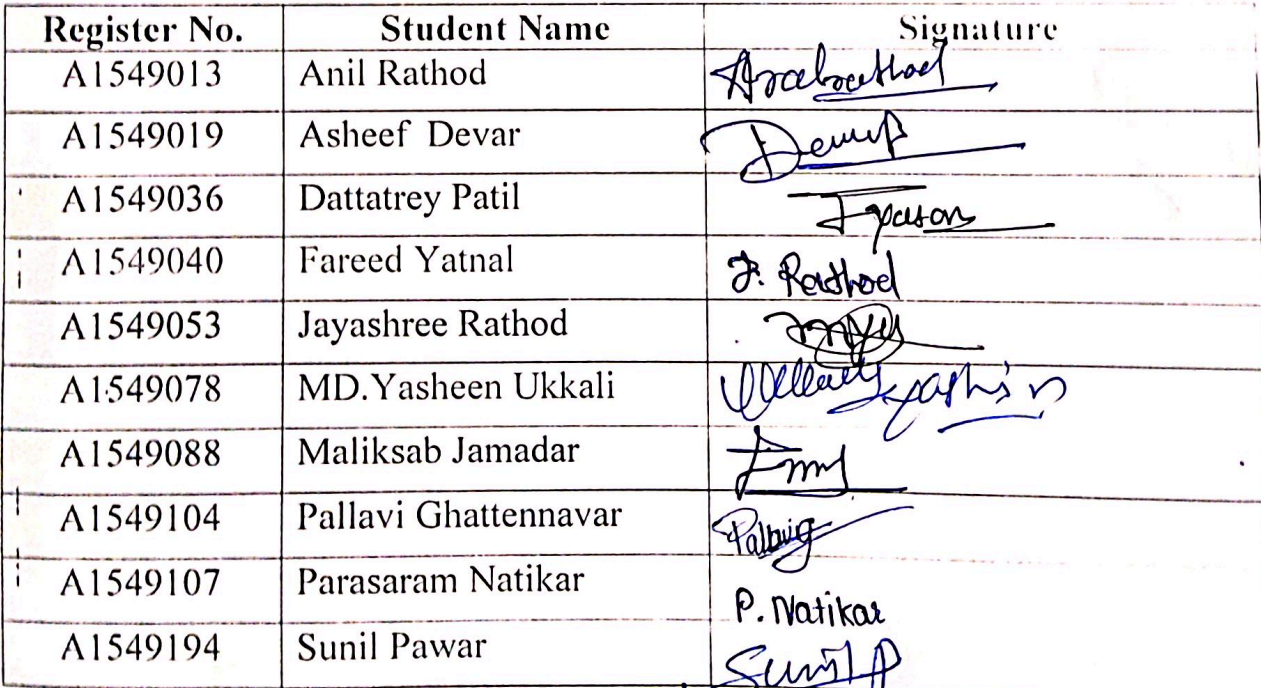 Register No. Student Name Signature
A1549013 Anil Rathod
A1549019 Asheef Devar
A1549036 Dattatrey Patil
A1549040 Fareed Yatnal J. Rathod
A1549053 Jayashree Rathod
A1549078 MD.Yasheen Ukkali
A1549088 Maliksab Jamadar
A1549104 Pallavi Ghattennavar Pallavig
A1549107 Parasaram Natikar P. Natikar
A1549194 Sunil Pawar Sunil P